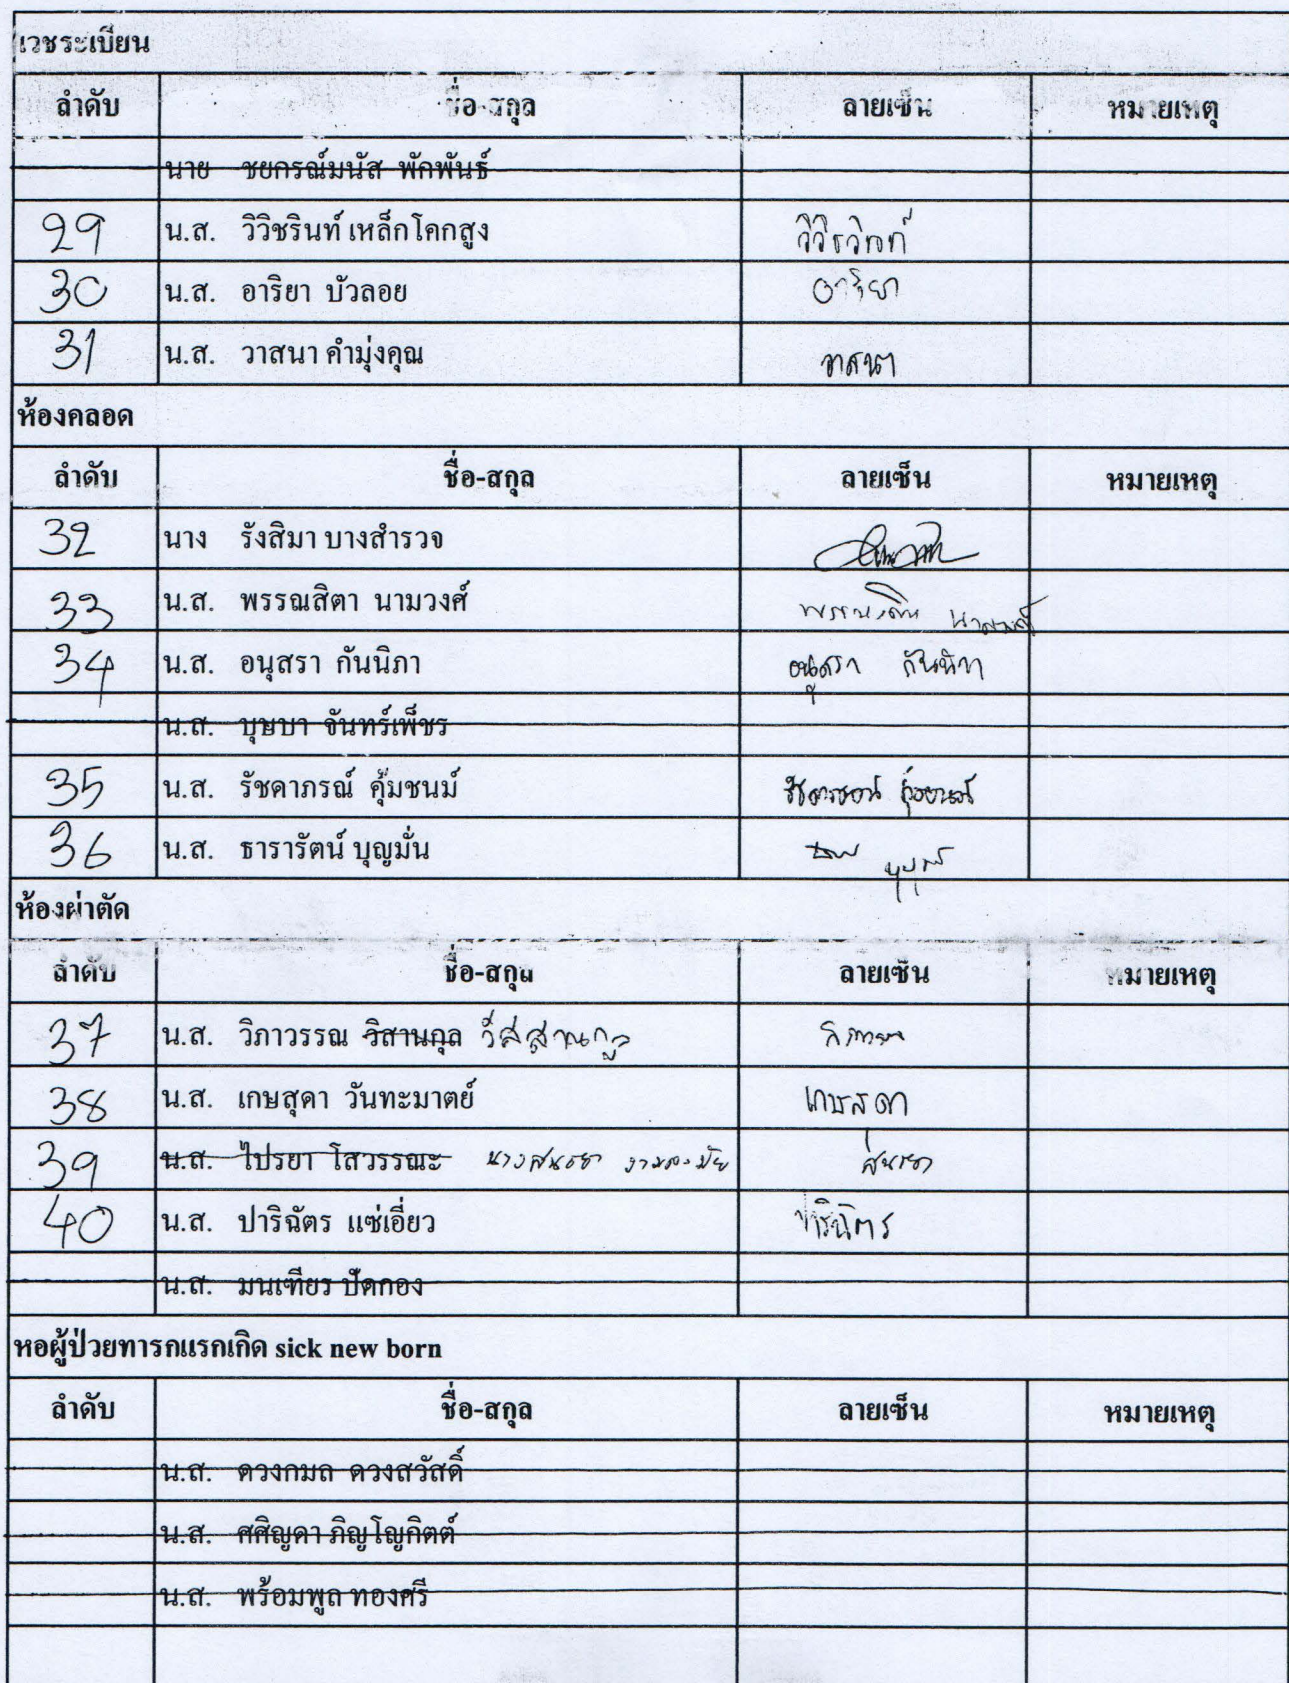 เวชระเบียน
ลำดับ ชื่อ-สกุล ลายเซ็น หมายเหตุ
นาย ชยกรณ์มนัส พักพันธ์
29 น.ส. วิวิชรินท์ เหล็กโคกสูง
30 น.ส. อาริยา บัวลอย อาริยา
31 น.ส. วาสนา คำมุ่งคุณ วาสนา
ห้องคลอด
ลำดับ ชื่อ-สกุล ลายเซ็น หมายเหตุ
32 นาง รังสิมา บางสำรวจ
33 น.ส. พรรณสิตา นามวงศ์
34 น.ส. อนุสรา กันนิภา อนุสรา กันนิภา
น.ส. บุษบา จันทร์เพ็ชร
35 น.ส. รัชดาภรณ์ คุ้มชนม์ รัชดาภรณ์ คุ้มชนม์
36 น.ส. ธารารัตน์ บุญมั่น
ห้องผ่าตัด
ลำดับ ชื่อ-สกุล ลายเซ็น หมายเหตุ
37 น.ส. วิภาวรรณ วิสานกุล วิสสานกุล
38 น.ส. เกษสุดา วันทะมาตย์ เกษสุดา
39 น.ส. ไปรยา โสวรรณะ นางสนธยา สนธยา
40 น.ส. ปาริฉัตร แซ่เอี่ยว ปาริฉัตร
น.ส. มนเฑียร ปัดกอง
หอผู้ป่วยทารกแรกเกิด sick new born
ลำดับ ชื่อ-สกุล ลายเซ็น หมายเหตุ
น.ส. ดวงกมล ดวงสวัสดิ์
น.ส. ศศิญดา ภิญโญกิตต์
น.ส. พร้อมพูล ทองศรี